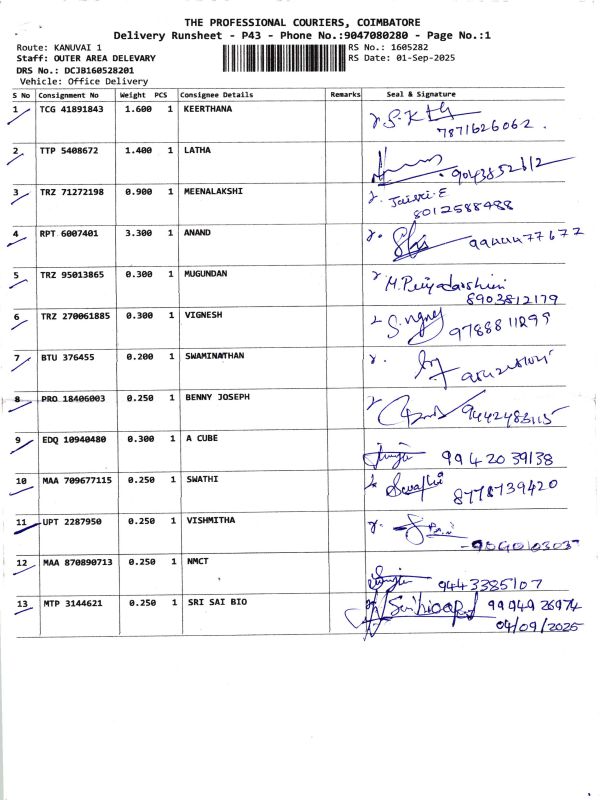 THE PROFESSIONAL COURIERS, COIMBATORE
Delivery Runsheet - P43 - Phone No.:9047080280 - Page No.:1
Route: KANUVAI 1 RS No.: 1605282
Staff: OUTER AREA DELEVARY RS Date: 01-Sep-2025
DRS No.: DCJB160528201
Vehicle: Office Delivery
S No Consignment No Weight PCS Consignee Details Remarks Seal & Signature
1 TCG 41891843 1.600 1 KEERTHANA
7871626062.
2 TTP 5408672 1.400 1 LATHA
9043852612
3 TRZ 71272198 0.900 1 MEENALAKSHI Jaisri.E
8012588488
4 RPT 6007401 3.300 1 ANAND 77672
5 TRZ 95013865 0.300 1 MUGUNDAN
8903812179
6 TRZ 270061885 0.300 1 VIGNESH
9788811299
7 BTU 376455 0.200 1 SWAMINATHAN
8 PRO 18406003 0.250 1 BENNY JOSEPH 9442483115
9 EDQ 10940480 0.300 1 A CUBE
9942039138
10 MAA 709677115 0.250 1 SWATHI Swathi
8778739420
11 UPT 2287950 0.250 1 VISHMITHA
12 MAA 870890713 0.250 1 NMCT
9443385107
13 MTP 3144621 0.250 1 SRI SAI BIO 9994926974
04/09/2025